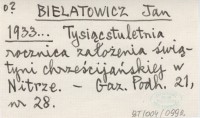 o? BIELATOWICZ Jan
1933... Tysiącstuletnia
rocznica założenia świą-
tyni chrześcijańskiej w
Nitrze. - Gaz. Podh. 21,
nr 28.
BT/004/099R